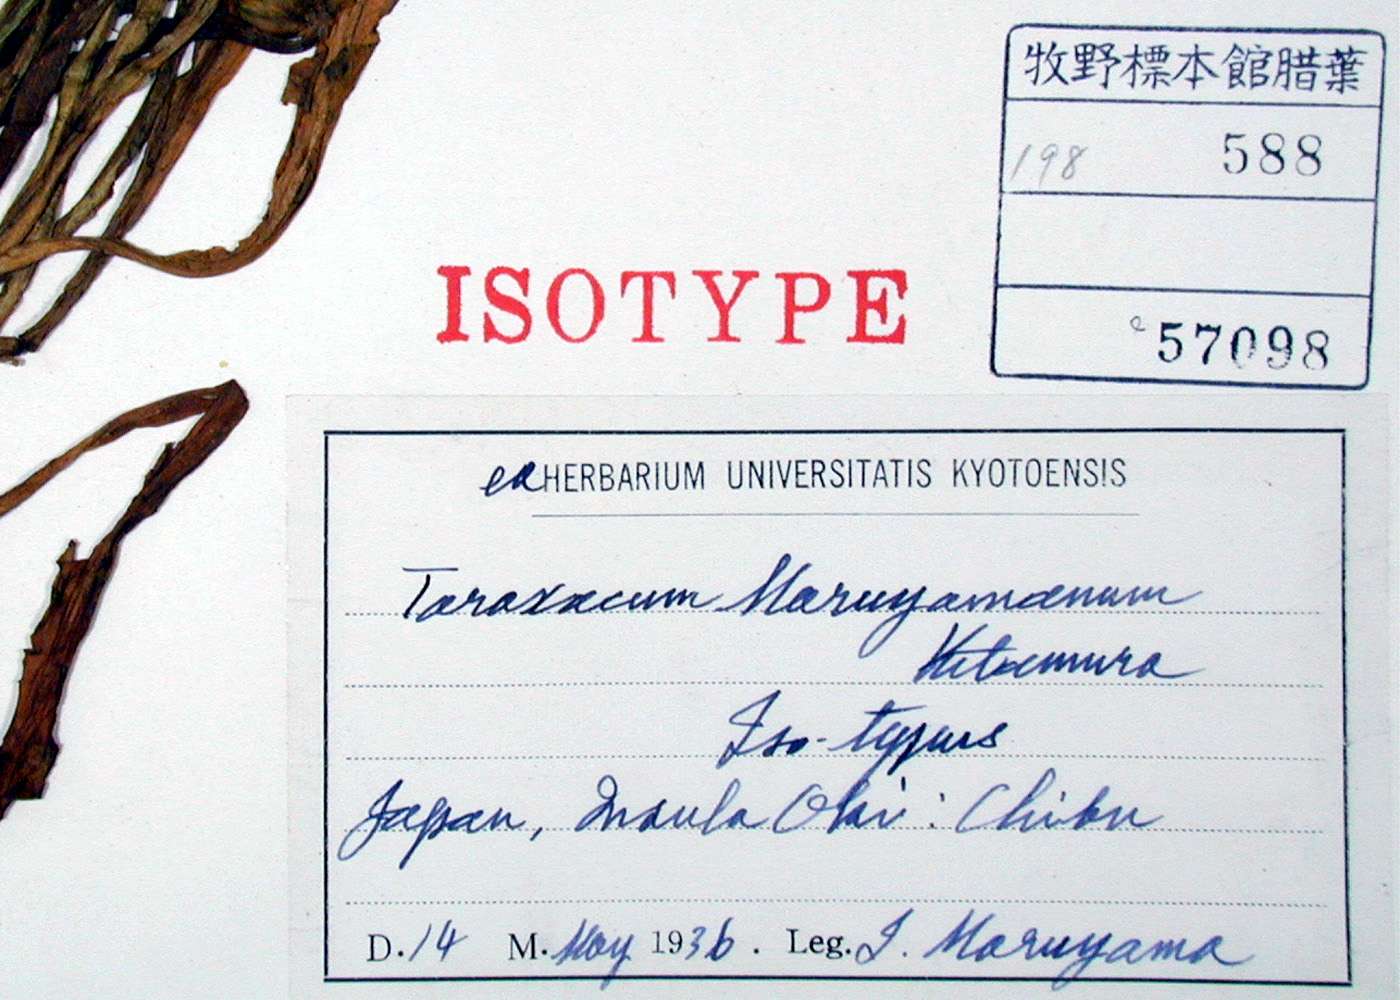 牧野標本館腊葉
198 588
c57098
ISOTYPE
ex HERBARIUM UNIVERSITATIS KYOTOENSIS
Taraxacum Maruyamanum
Kitamura
Iso-typus
Japan, Insula Oki : Chibu
D. 14 M. May 1936. Leg. I. Maruyama